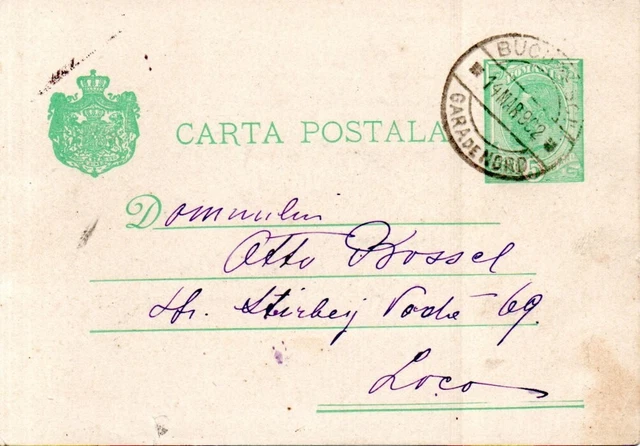 CARTA POSTALA
BUCURESCI
14 MAR 902
GARA DE NORD
5
Domnului
Otto Rossel
Str. Stirbey Vodă 69
Loco